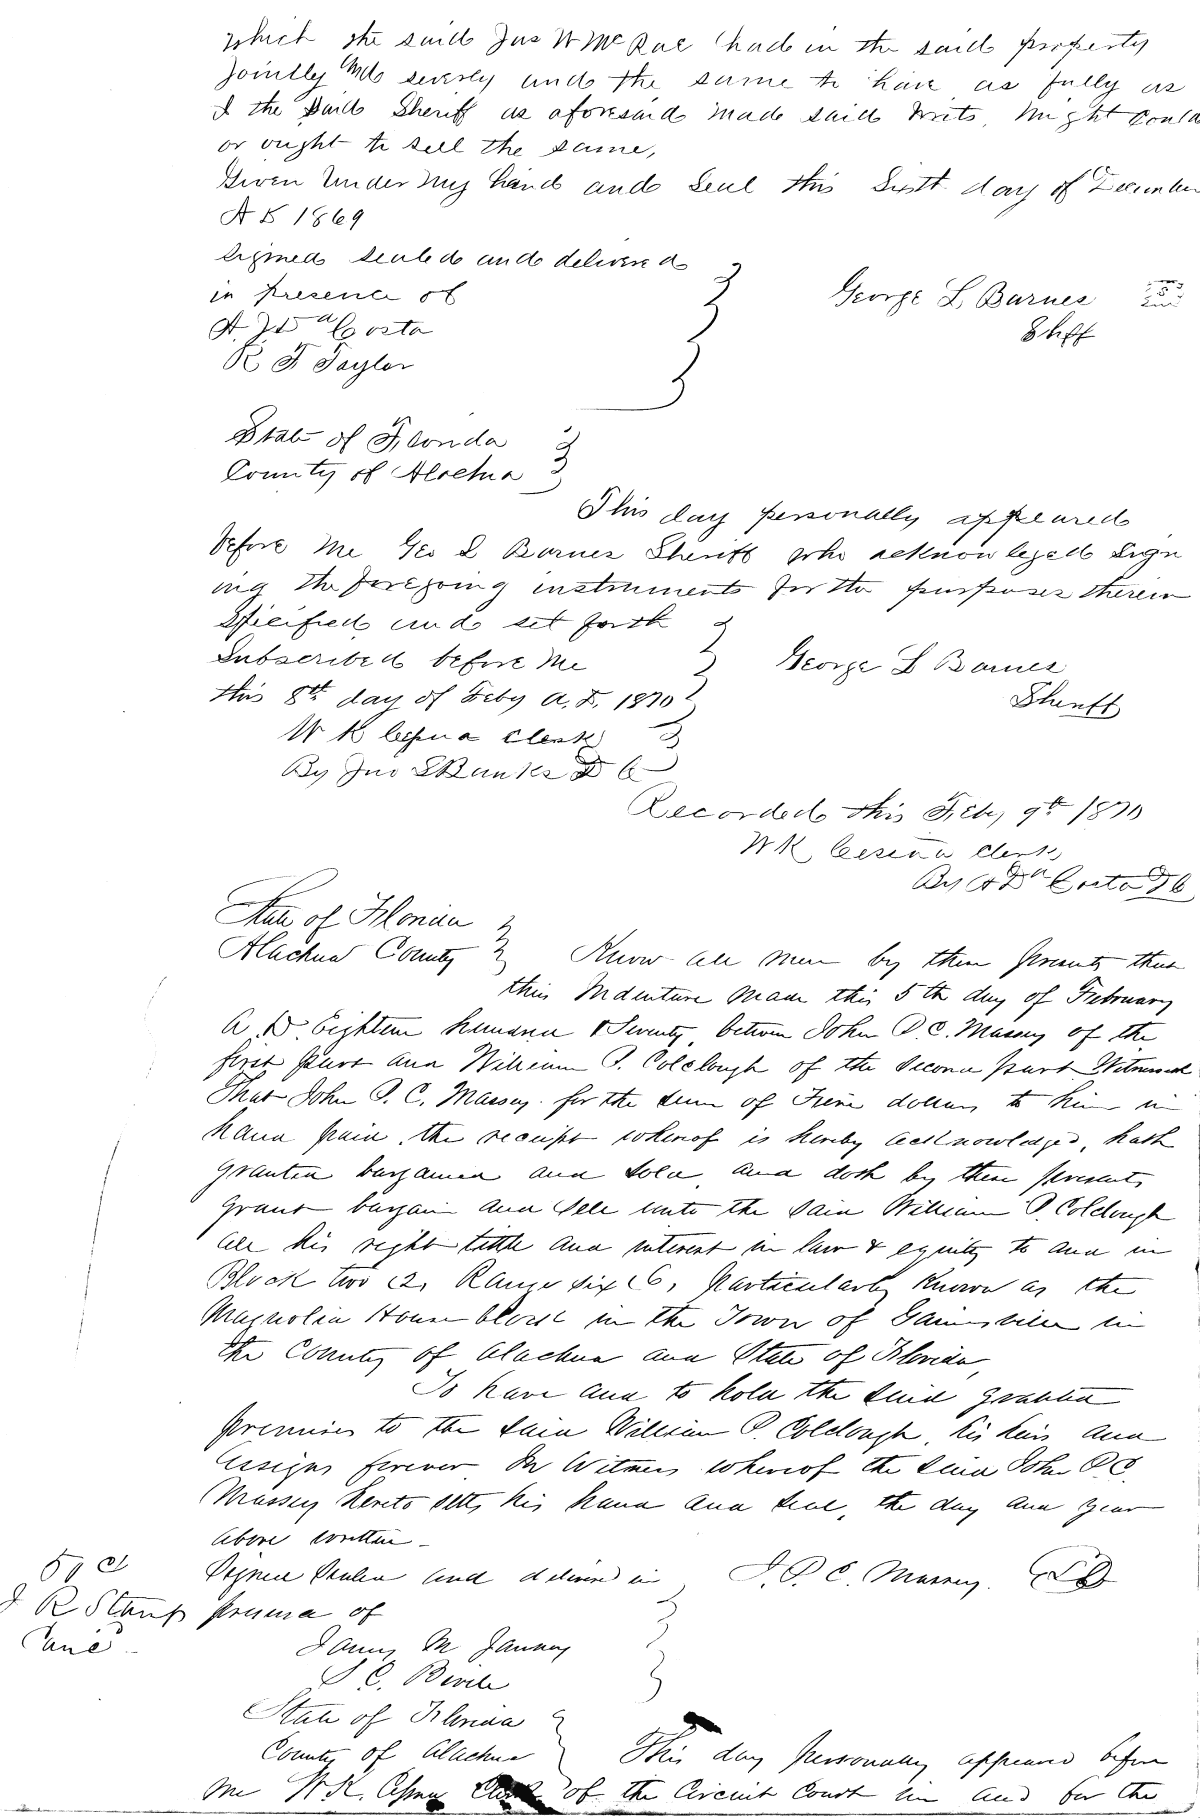 which the said Jas W McRae had in the said property
jointly and severly and the same to have as fully as
I the said Sheriff as aforesaid made said writs, might could
or ought to sell the same,
Given under my hand and seal this Sixth day of December
A D 1869
Signed sealed and delivered
in presence of
A. J. Da Costa
R F Taylor
George L Barnes
Shff
State of Florida
County of Alachua
This day personally appeared
before me Geo L Barnes Sheriff who acknowleged sign
ing the foregoing instruments for the purposes therein
specified and set forth
Subscribed before me
this 8th day of Feby A. D. 1870
George L Barnes
Sheriff
W K Cessna Clerk
By Jno S Banks D C
Recorded this Feby 9th 1870
W K Cessna Clerk
By A Da Costa D C
State of Florida
Alachua County
Know all men by these presents that
this Indenture made this 5th day of February
A. D. Eighteen hundred & Seventy, between John P. C. Massey of the
first part and William P. Colclough of the second part Witnesseth
That John P. C. Massey for the sum of dollars to him in
hand paid, the receipt whereof is hereby acknowledged, hath
granted bargained and sold, and doth by these presents,
grant bargain and sell unto the said William P. Colclough
all his right title and interest in law & equity to and in
Block two (2) Range six (6), particularly known as the
Magnolia House block in the Town of Gainesville in
the County of Alachua and State of Florida,
To have and to hold the said granted
premises to the said William P. Colclough, his heirs and
Assigns forever. In Witness whereof the said John P. C.
Massey hereto sets his hand and seal, the day and year
above written -
Signed Sealed and delivered in
J. P. C. Massey.
50 c
I R Stamp
presence of
James M Janney
S C.
State of Florida
County of Alachua
This day personally appeared before
me W. K. Cessna Clerk of the Circuit Court in and for the